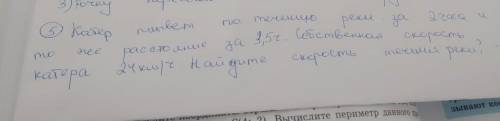 3)
⑤ Катер плывет по течению реки за 2 часа и
то же расстояние за 1,5ч. Собственная скорость
катера 24км/ч. Найдите скорость течения реки?
Вычислите периметр данного
зывают